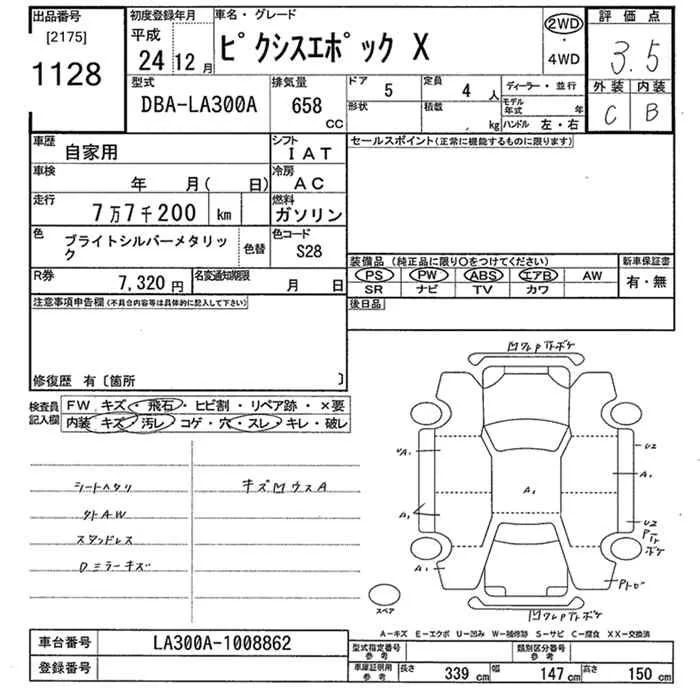 出品番号 初度登録年月 車名・グレード 評価点
[2175] 平成 ピクシスエポック X 2WD
1128 24 12月 ・ 3.5
4WD
型式 排気量 ドア 定員 ディーラー・並行 外装 内装
DBA-LA300A 658 CC 5 4人 C B
形状 積載 kg モデル年式 年
ハンドル 左・右
車歴 自家用 シフト IAT セールスポイント(正常に機能するものに限ります)
車検 年 月( 日) 冷房 AC
走行 7万7千200 km 燃料 ガソリン
色 ブライトシルバーメタリック 色替 色コード S28
装備品(純正品に限り○をつけてください) 新車保証書
R券 7,320円 名変通知期限 月 日 PS PW ABS エアB AW 有・無
SR ナビ TV カワ
注意事項申告欄(不具合内容等は具体的に記入して下さい) 後日品
修復歴 有〔箇所 〕
検査員記入欄 FW キズ・飛石・ヒビ割・リペア跡・×要
内装 キズ・汚レ・コゲ・穴・スレ・キレ・破レ
シートヘタリ キズ凹ウスA
タトAW
スタッドレス
Dミラーキズ
A1
A1
A1
A1
A1
U2
U2
スペア
A-キズ E-エクボ U-凹み W-補修跡 S-サビ C-腐食 XX-交換済
車台番号 LA300A-1008862 型式指定番号 参考 類別区分番号 参考
登録番号 車庫証明用 参考 長さ 339cm 幅 147cm 高さ 150cm